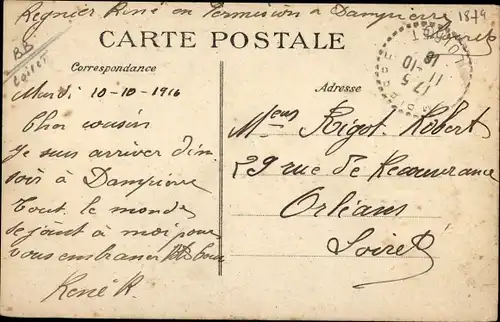 Regnier René en Permission à Dampierre
Loiret
1879
BB
Loiret
CARTE POSTALE
Correspondance
Adresse
LOIRET
17 5
11-10
16
Mardi 10-10-1916
Cher cousin
Je suis arriver dim
soir à Dampierre
Tout le monde
se joint à moi pour
vous embrasser
René R.
Mens Rigot Robert
29 rue de Recouvrance
Orléans
Loiret